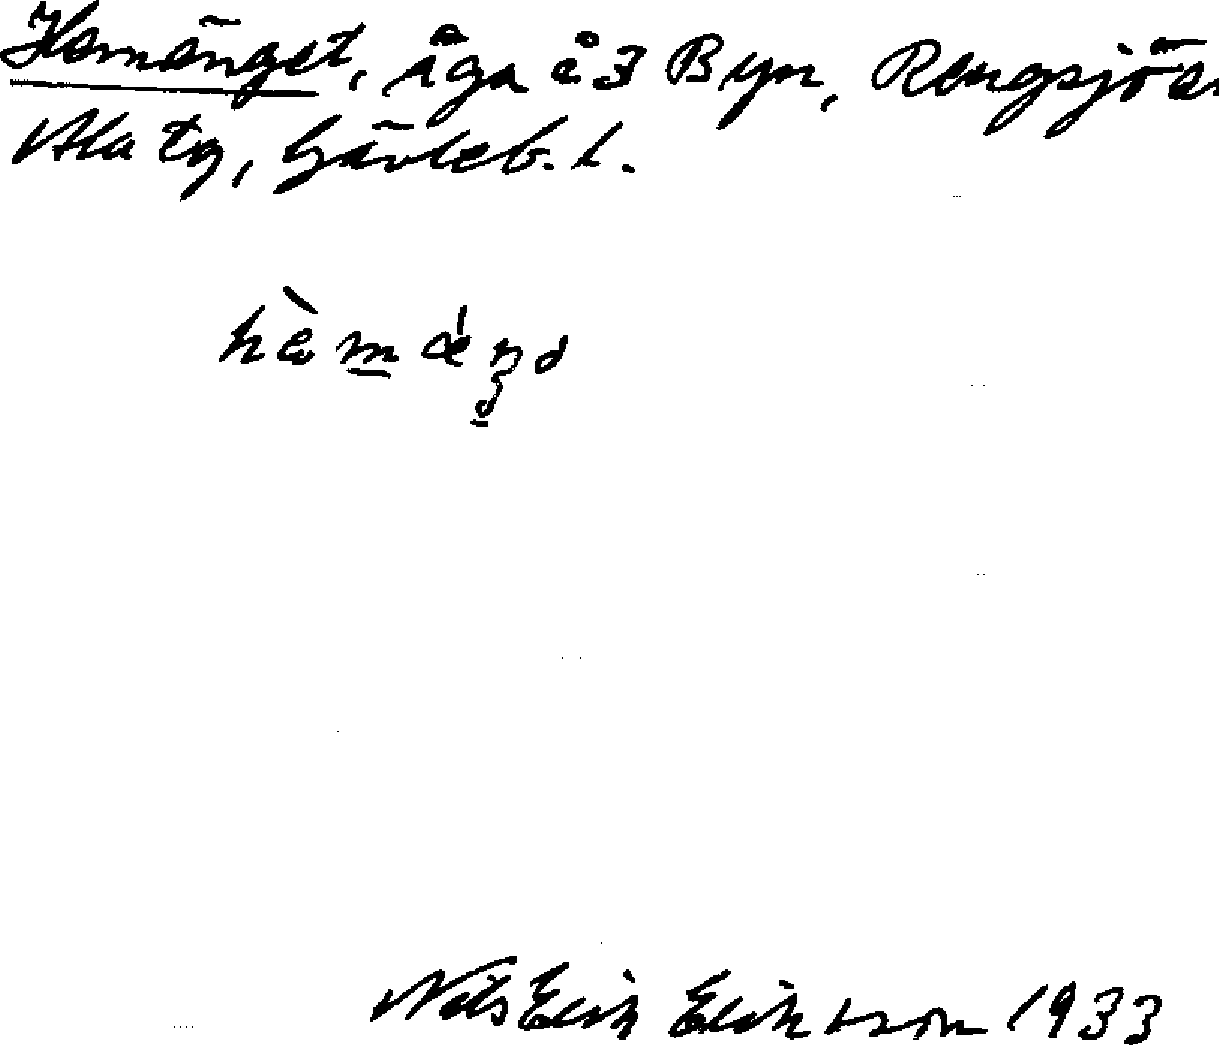 Hemänget, äga å 3 Byn, Rengsjö sn
Ala tg, Gävleb. l.
Nils Erik Eriksson 1933